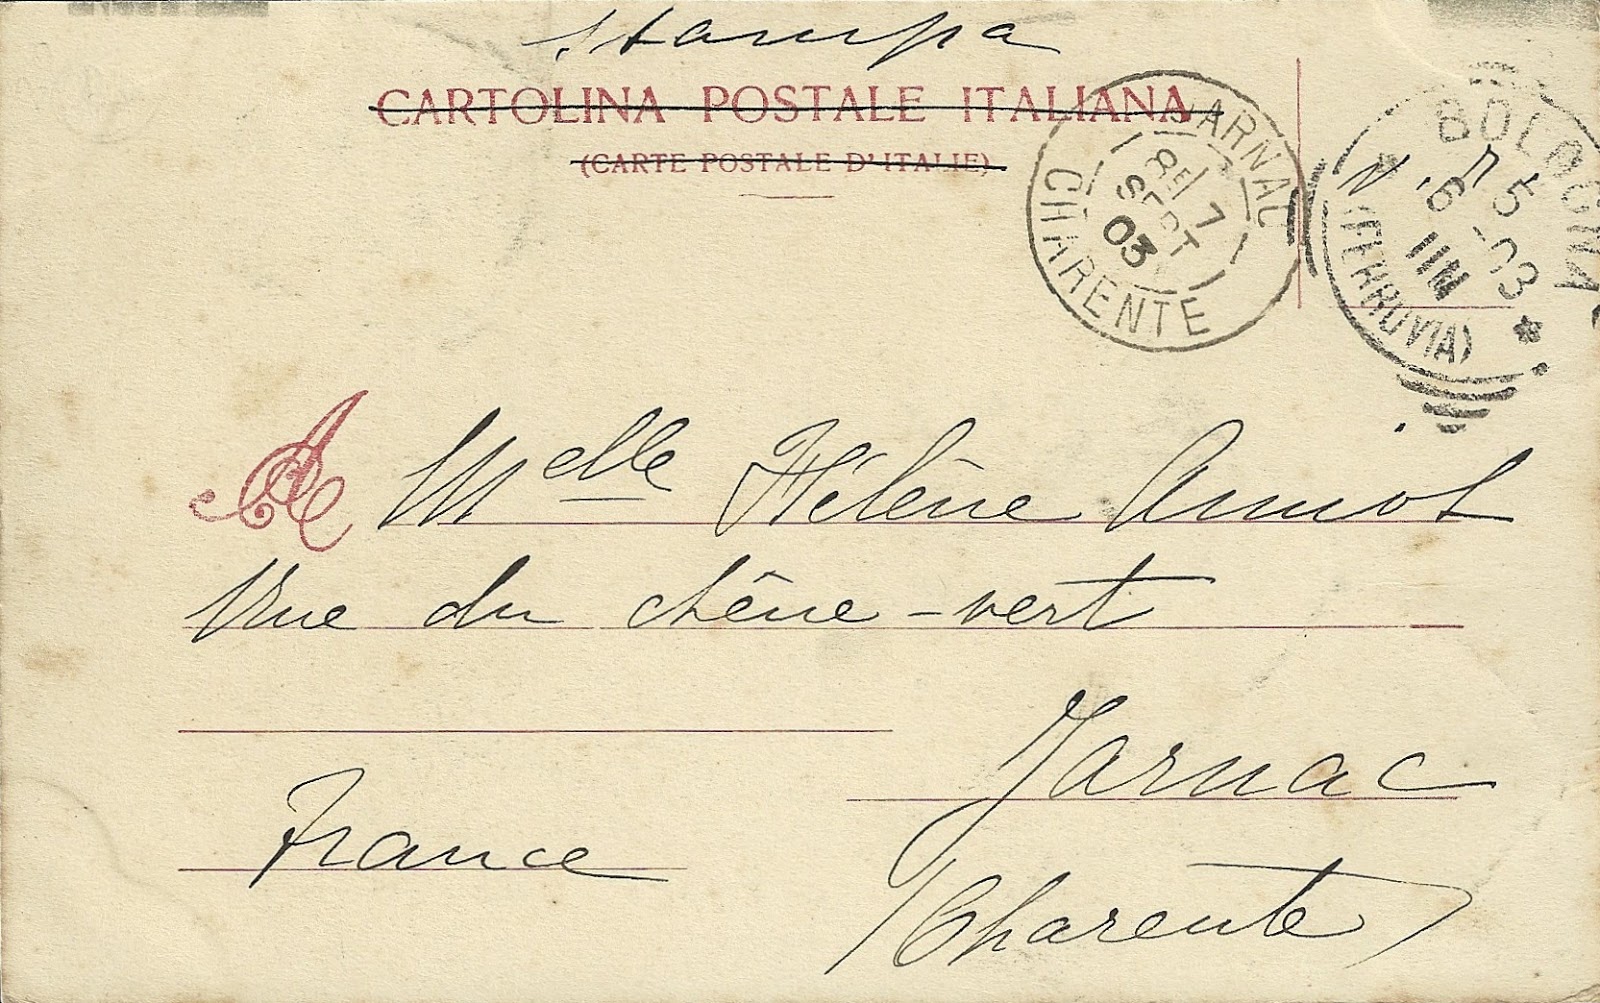 stampa
CARTOLINA POSTALE ITALIANA
(CARTE POSTALE D'ITALIE)
JARNAC
7
SEPT
03
CHARENTE
BOLOGNA
5
6 - 03
(FERROVIA)
A Melle Hélène
rue du chêne-vert
Jarnac
France
(Charente)